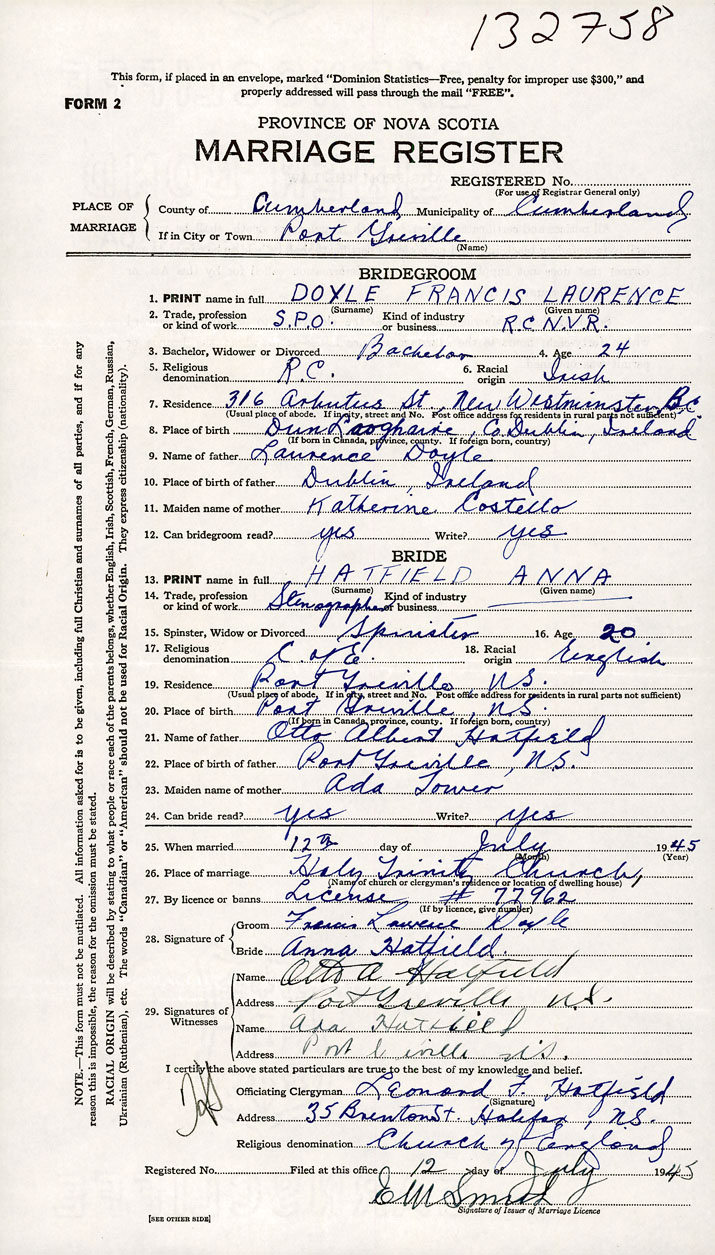 132758
This form, if placed in an envelope, marked "Dominion Statistics—Free, penalty for improper use $300," and
properly addressed will pass through the mail "FREE".
FORM 2
PROVINCE OF NOVA SCOTIA
MARRIAGE REGISTER
REGISTERED No.
(For use of Registrar General only)
PLACE OF MARRIAGE
County of Cumberland Municipality of Cumberland
If in City or Town Port Greville
(Name)
BRIDEGROOM
1. PRINT name in full DOYLE FRANCIS LAURENCE
(Surname) (Given name)
2. Trade, profession or kind of work S.P.O. Kind of industry or business R.C.N.V.R.
3. Bachelor, Widower or Divorced Bachelor 4. Age 24
5. Religious denomination R.C. 6. Racial origin Irish
7. Residence 316 Arbutus St., New Westminster, B.C.
(Usual place of abode. If in city, street and No. Post office address for residents in rural parts not sufficient)
8. Place of birth Dun Laoghaire, Co. Dublin, Ireland
(If born in Canada, province, county. If foreign born, country)
9. Name of father Laurence Doyle
10. Place of birth of father Dublin, Ireland
11. Maiden name of mother Katherine Costello
12. Can bridegroom read? yes Write? yes
BRIDE
13. PRINT name in full HATFIELD ANNA
(Surname) (Given name)
14. Trade, profession or kind of work Stenographer Kind of industry or business
15. Spinster, Widow or Divorced Spinster 16. Age 20
17. Religious denomination C. of E. 18. Racial origin English
19. Residence Port Greville, N.S.
(Usual place of abode. If in city, street and No. Post office address for residents in rural parts not sufficient)
20. Place of birth Port Greville, N.S.
(If born in Canada, province, county. If foreign born, country)
21. Name of father Otto Albert Hatfield
22. Place of birth of father Port Greville, N.S.
23. Maiden name of mother Ada Tower
24. Can bride read? yes Write? yes
25. When married 12th day of July 1945
(Month) (Year)
26. Place of marriage Holy Trinity Church,
(Name of church or clergyman's residence or location of dwelling house)
27. By licence or banns License # 77962
(If by licence, give number)
28. Signature of
Groom Francis Lawrence Doyle
Bride Anna Hatfield.
29. Signatures of Witnesses
Name Otto A Hatfield
Address Port Greville N.S.
Name Ada Hatfield
Address Port Greville N.S.
I certify the above stated particulars are true to the best of my knowledge and belief.
Officiating Clergyman Leonard F. Hatfield
(Signature)
Address 35 Brenton St. Halifax, N.S.
Religious denomination Church of England
Registered No. Filed at this office 12 day of July 1945
E M Smith
Signature of Issuer of Marriage Licence
[SEE OTHER SIDE]
NOTE.—This form must not be mutilated. All information asked for is to be given, including full Christian and surnames of all parties, and if for any
reason this is impossible, the reason for the omission must be stated.
RACIAL ORIGIN will be described by stating to what people or race each of the parents belongs, whether English, Irish, Scottish, French, German, Russian,
Ukrainian (Ruthenian), etc. The words "Canadian" or "American" should not be used for Racial Origin. They express citizenship (nationality).